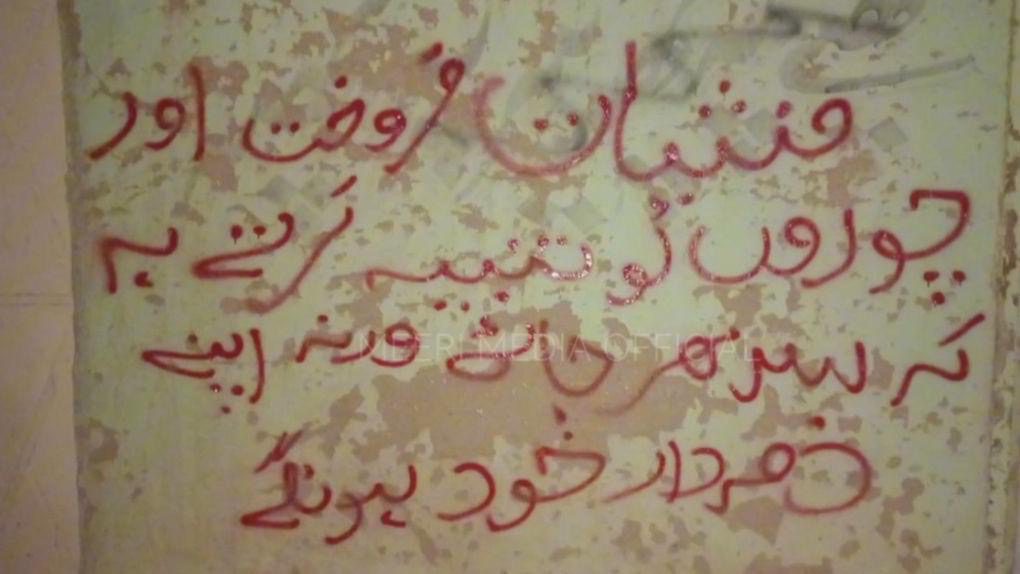 منشیان فروخت اور
چوروں کو تنبیہ کرتے ہے
کہ سدھر جائے ورنہ اپنے
ذمردار خود ہونگے
MEERI MEDIA OFFICIAL